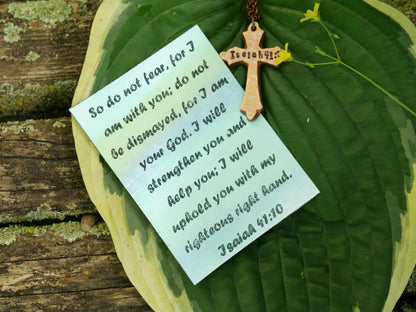 Isaiah 41:
So do not fear, for I
am with you; do not
be dismayed, for I am
your God. I will
strengthen you and
help you; I will
uphold you with my
righteous right hand.
Isaiah 41:10